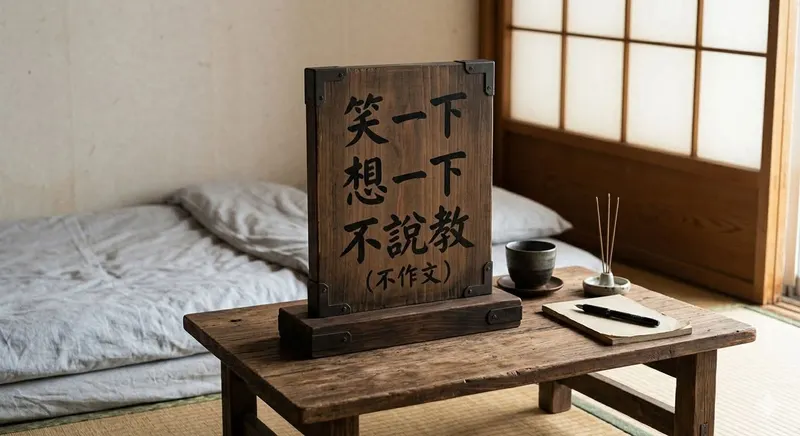 笑一下
想一下
不說教
(不作文)